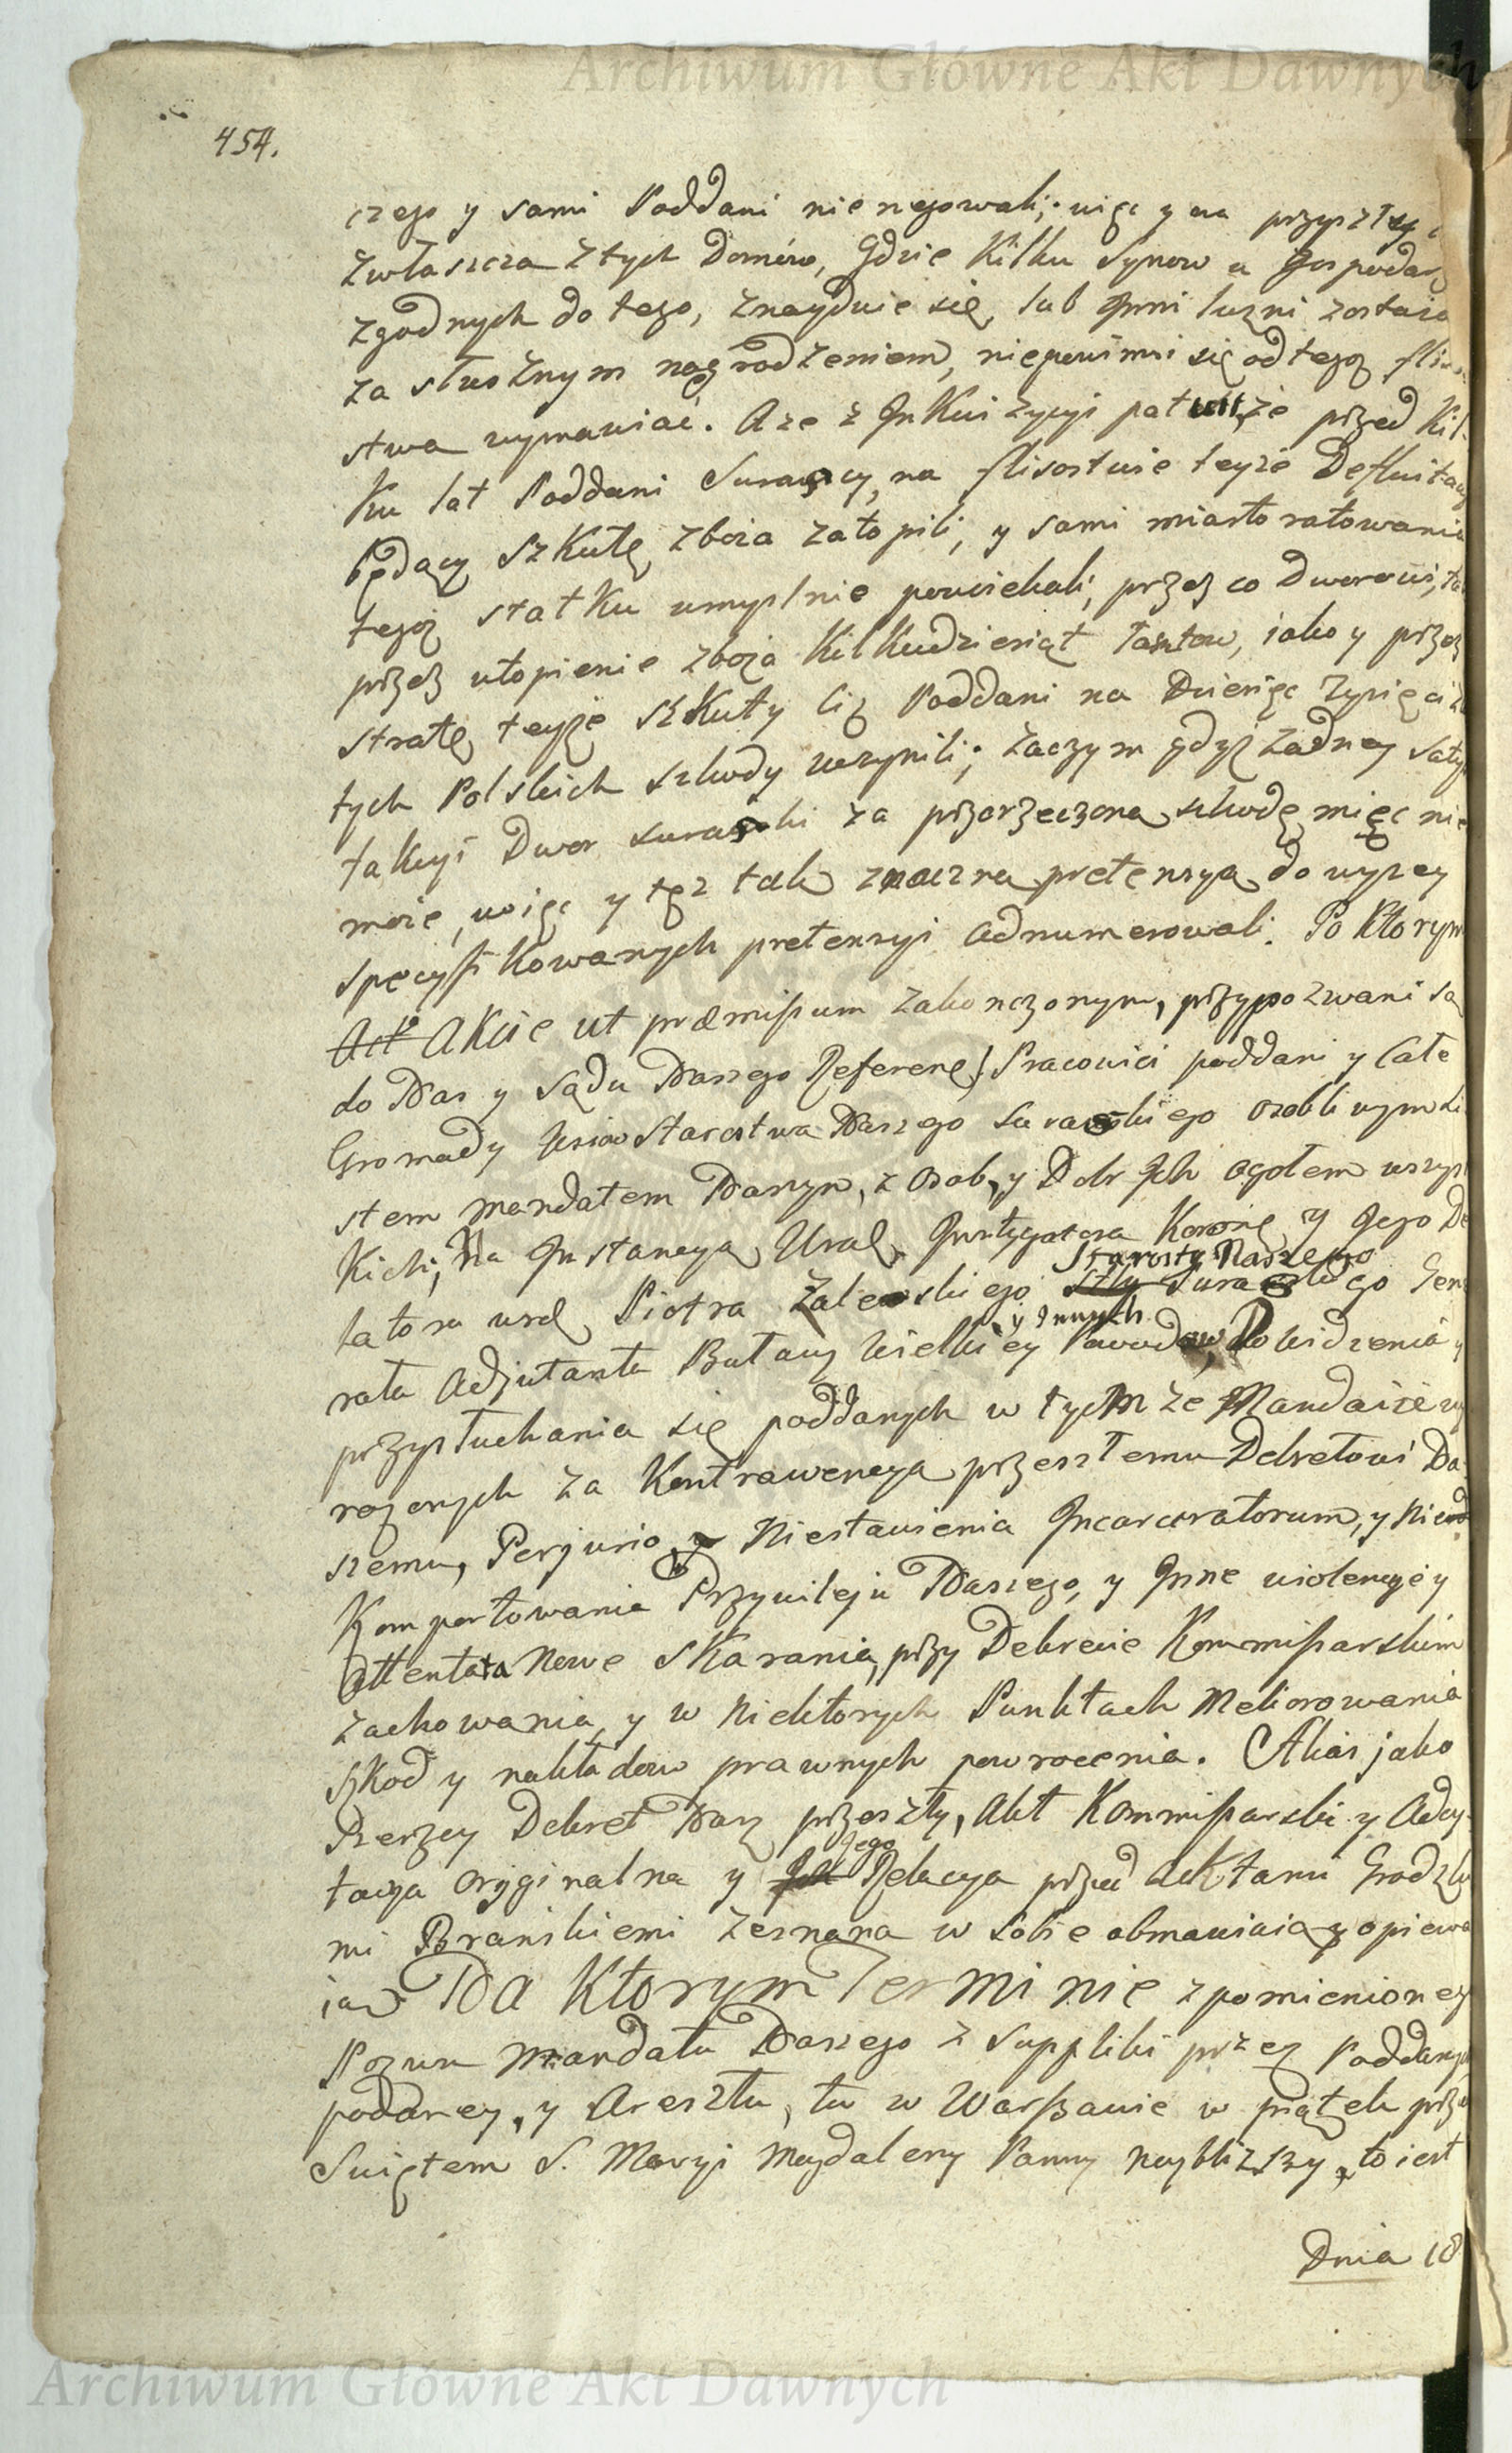 Archiwum Główne Akt Dawnych
454.
czego y sami Poddani nienegowali; więc y na przyszłey
Zwłaszcza Ztych Domow, Gdzie Kilku Synow u Gospodar
zgodnych do tego, Znayduie się, lub Jnni luzni zostaią
za słusznym nagrodzeniem, niepowinni się od tegoz fliso
stwa wymawiać. A ze z JnKwizycyi patuit, że przed Kil-
Ku lat Poddani Surascy, na flisostwie teyże Defluitacyi
będący SzKutę zboża zatopili, y sami miasto ratowania
tegoż statKu umyslnie pouciekali, przez co Dworowi, ta
przez utopienie zboża KilKudziesiąt łasztow, iako y przez
stratę teyże szKuty Ciż Poddani na Dziesięc Tysięci Zł
tych Polskich szkody uczynili; Zaczym gdyż Zadney saty
takcyi Dwor suraski za przerzeczoną szkodę mięc nie
może, więc y tęż tak znaczną pretensyą do wyżey
specyfikowanych pretensyi adnumerowali. Po Ktorym
Akcie ut præmissum zakonczonym, przypozwani są
do Nas y Sądu Naszego Referen. Pracowici poddani y Całe
Gromady Wsiow Starostwa Naszego Suraskiego osobliwym Li
stem mandatem Naszym, z Osob, y Dobr Jch ogołem wszyst
Kich, Na Jnstancyą Urod. Jnstygatora Koronne. y Jego De
latora urod. Piotra Zaleskiego Starosty Naszego Suraskiego Gene
rała Adjutanta Buławy Wielkiey y Jnnych Powodow, Do Widzenia y
przysłuchania się poddanych w tymże Mandacie wy
rażonych za Kontrawencyą przeszłemu Dekretowi Na
szemu, Perjurio, Niestawienia Jncarceratorum, y Nie
Komportowania Przywileju Naszego, y Jnne violencye y
Attentata Nowe sKarania, przy Dekrecie Kommissarskim
zachowania, y w Niektorych Punktach Meliorowania
szKod y nakładow prawnych powrocenia. Akas jako
Szerzey Dekret Nasz przeszły, Akt Kommissarski y Adcy-
tacya oryginalna y Jego Relacya przed Acktami Grodzkie
mi Branskiemi Zeznana w sobie obmawiaią y opiewa
ią. Na Ktorym Terminie z pomienionego
Pozwu Mandatu Naszego z suppliki przez Poddanych
podaney, y Aresztu, tu w Warszawie w piątek przed
Swiętem S. Maryi Magdaleny Panny naybliższy, to iest
Dnia 18
Archiwum Główne Akt Dawnych